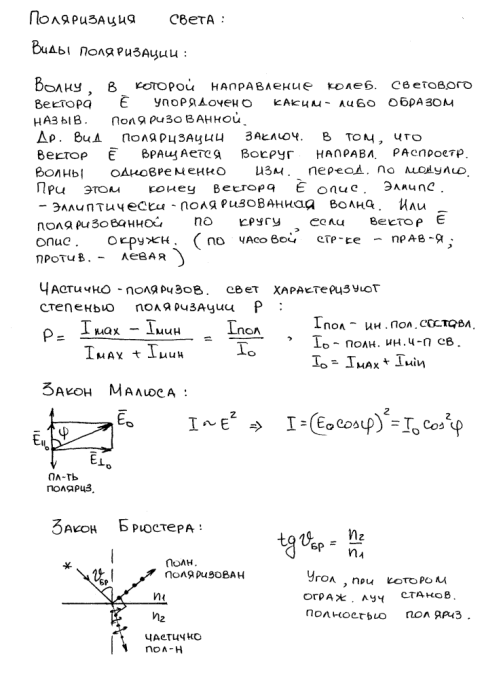 Поляризация света:
Виды поляризации:
Волну, в которой направление колеб. светового
вектора E̅ упорядочено каким-либо образом
назыв. поляризованной.
Др. вид поляризации заключ. в том, что
вектор E̅ вращается вокруг направл. распростр.
волны одновременно изм. период. по модулю.
При этом конец вектора E̅ опис. эллипс.
- эллиптически-поляризованная волна. Или
поляризованной по кругу, если вектор E̅
опис. окружн. (по часовой стр-ке - прав-я;
против. - левая)
Частично-поляризов. свет характеризуют
степенью поляризации P:
P = (Iмах - Iмин)/(Iмах + Iмин) = Iпол/I₀ ,
Iпол - ин. пол. составл.
I₀ - полн. ин. ч-п св.
I₀ = Iмах + Imin
Закон Малюса:
E̅∥₀ φ E̅₀
E̅⊥₀
пл-ть
поляриз.
I ~ E² ⇒ I = (E₀cosφ)² = I₀cos²φ
Закон Брюстера:
* ϑбр
полн.
поляризован
n₁
n₂
частично
пол-н
tgϑбр = n₂/n₁
Угол, при котором
отраж. луч станов.
полностью поляриз.